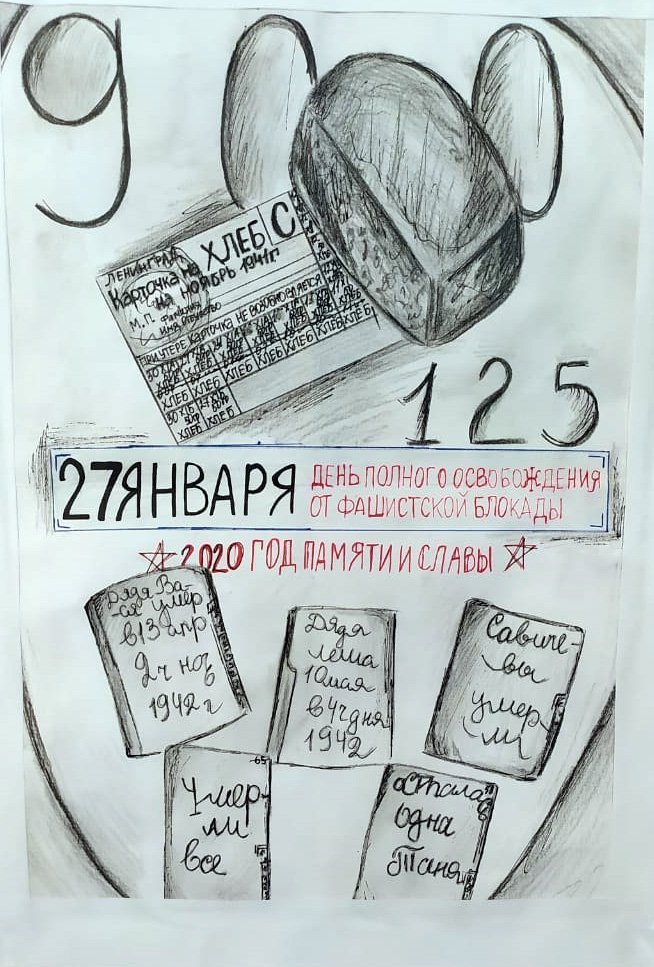 900
ЛЕНИНГРАД
Карточка на ХЛЕБ С
на НОЯБРЬ 1941г
М.П. Фамилия
имя отчество
ПРИ УТЕРЕ КАРТОЧКА НЕ ВОЗОБНОВЛЯЕТСЯ
ХЛЕБ ХЛЕБ ХЛЕБ ХЛЕБ ХЛЕБ ХЛЕБ
ХЛЕБ ХЛЕБ
ХЛЕБ ХЛЕБ
125
27 ЯНВАРЯ
ДЕНЬ ПОЛНОГО ОСВОБОЖДЕНИЯ
ОТ ФАШИСТСКОЙ БЛОКАДЫ
2020 ГОД ПАМЯТИ И СЛАВЫ
Дядя Ва-
-ся умер
в 13 апр
2 ч ноч
1942 г
Дядя
Леша
10 мая
в 4ч дня
1942
Савиче-
-вы
умер-
-ли
Умер-
ли
все
Осталась
одна
Таня